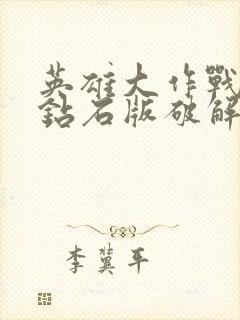 英雄大作戰
鈷石版破解
李冀平